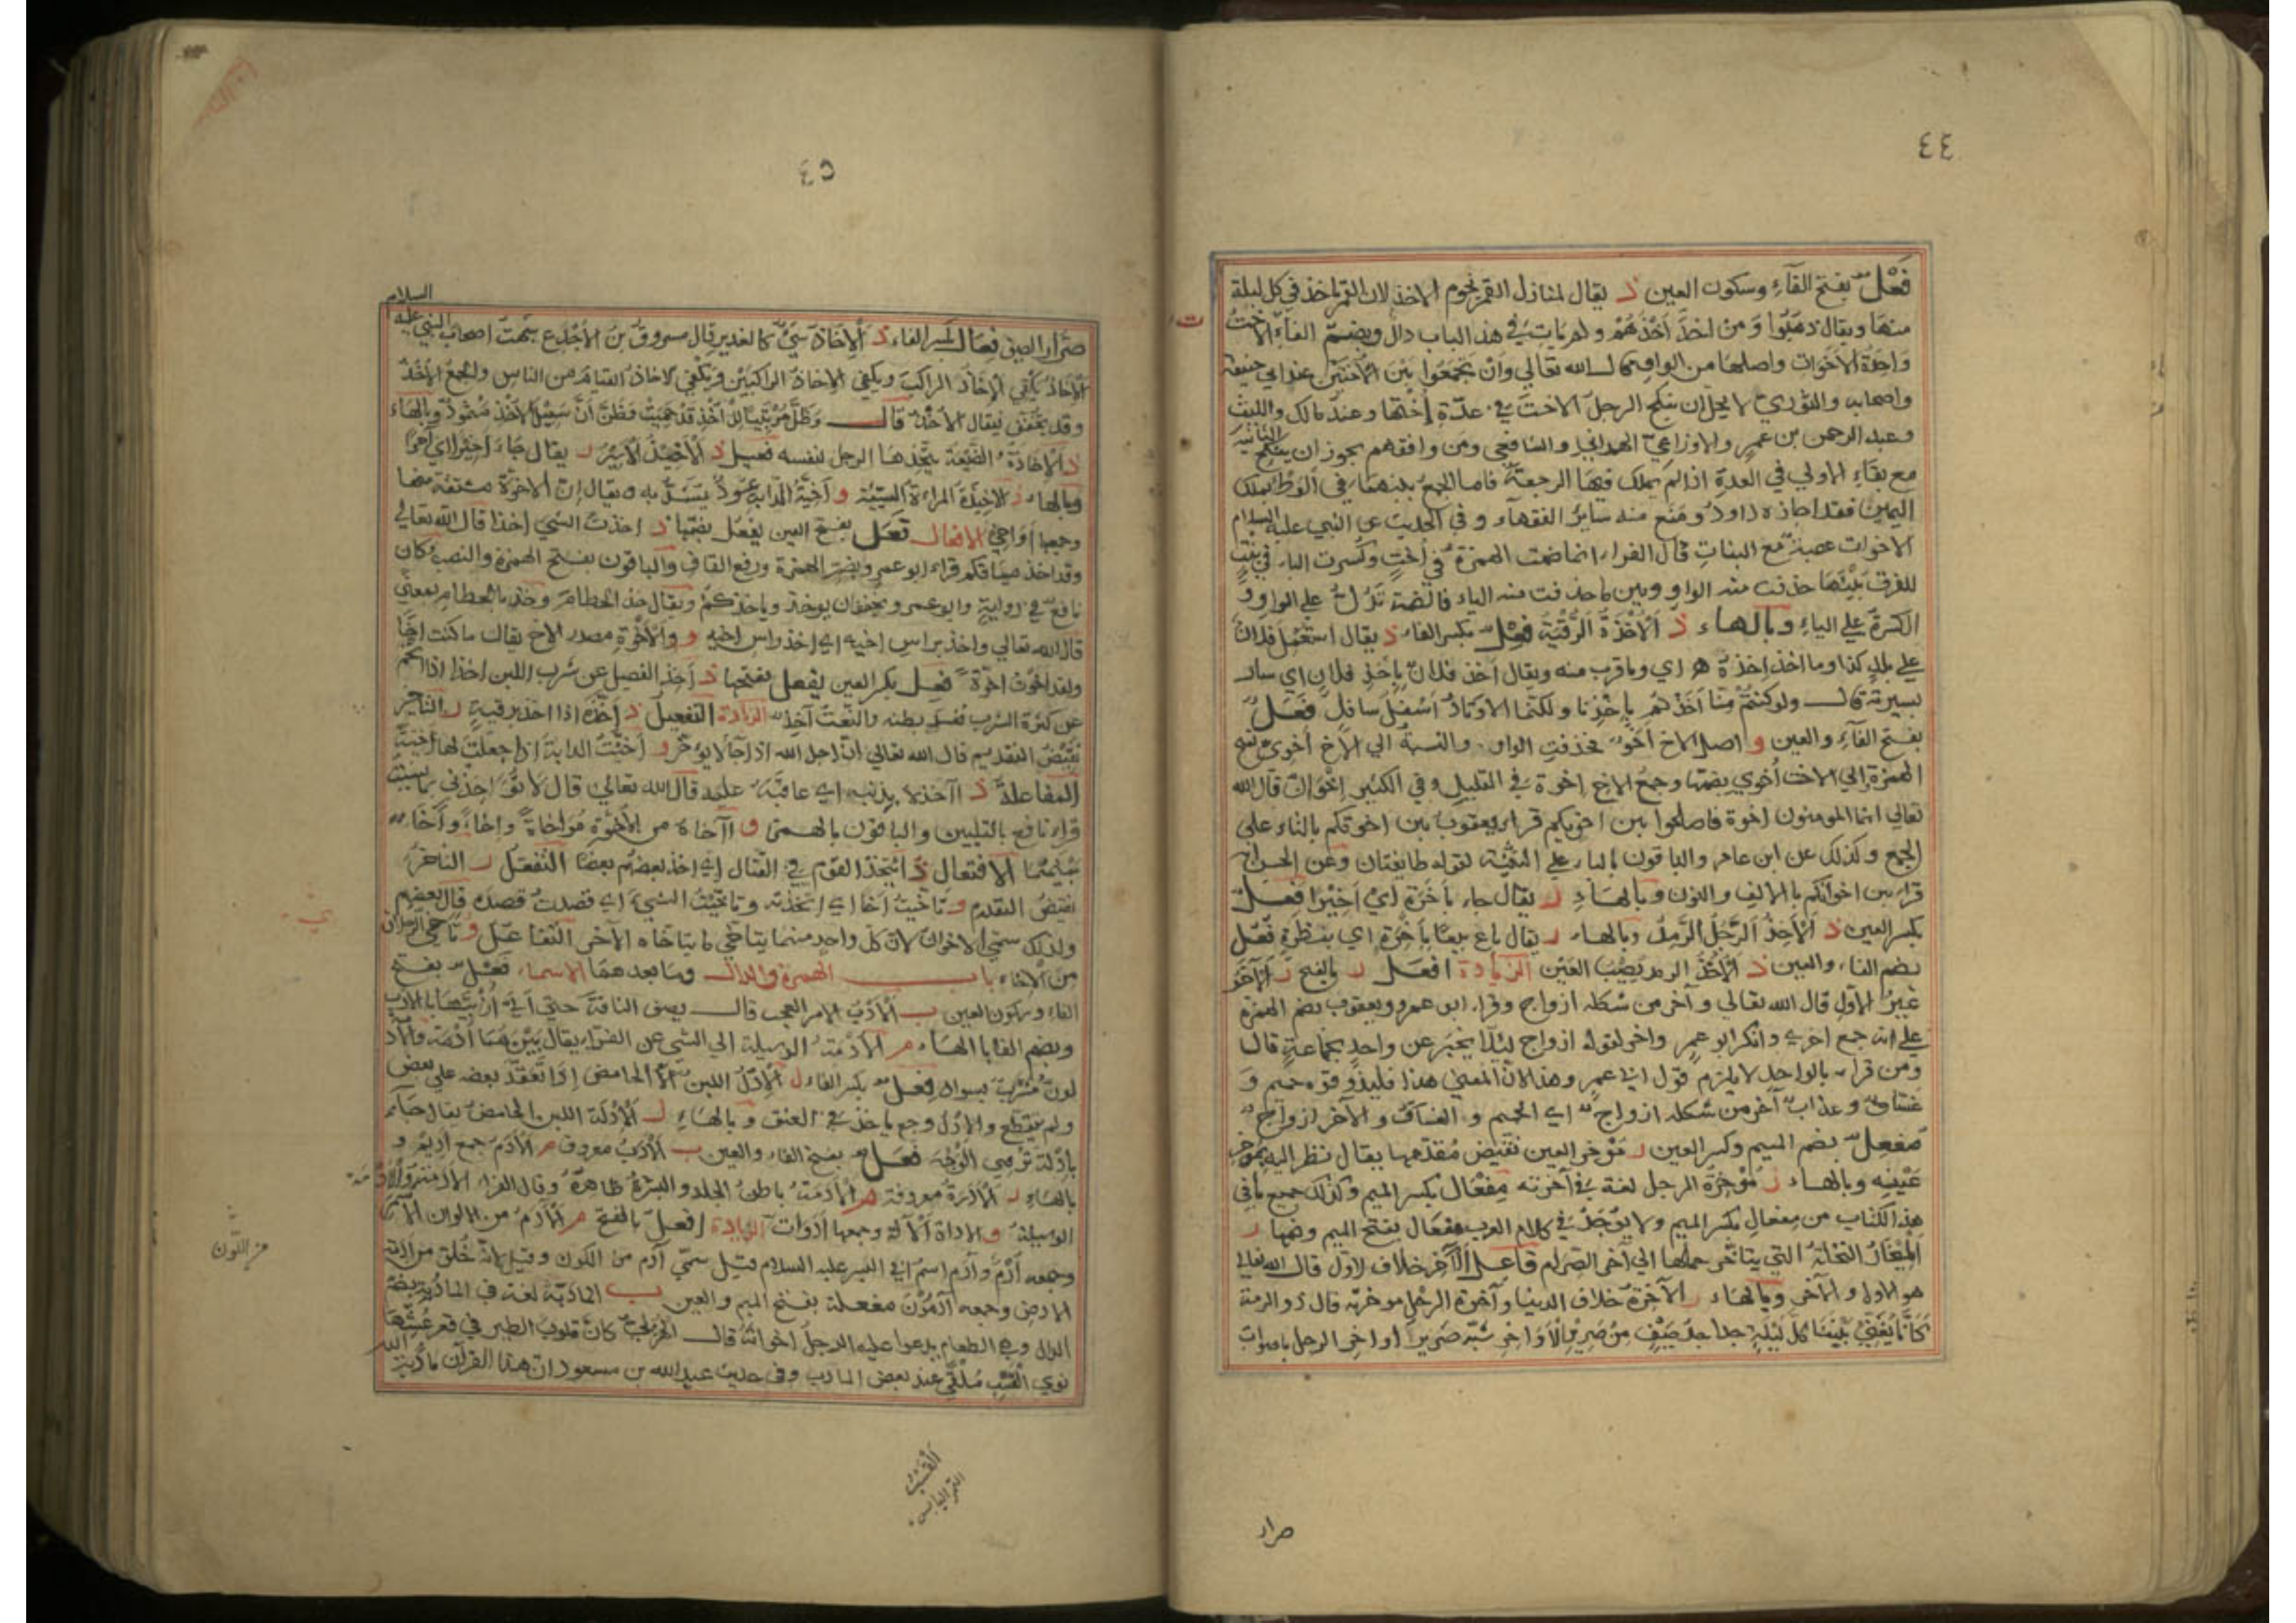 ٤٤
فَعْلٌ بفتح الفاءِ وسكون العين ذ يقال لمنازل القمر نجوم الاخذ لان القمر ياخذ في كل ليلة
منها ويقال ذهبوا ومن اخذ اخذهم ولم يات في هذا الباب دال وبضم الفاء الاختُ
واحدة الاخوات واصلها من الواو قال الله تعالي وأن تجمعوا بين الأختين عند ابي حنيفة
واصحابه والثوري لا يحل ان ينكح الرجل الاخت في عدة اختها وعند مالك والليث
وعبد الرحمن بن عمرٍ والاوزاعي والشافعي ومن وافقهم يجوز ان ينكح الثانية
مع بقاءِ الاولي في العدة اذا لم يملك فيها الرجعة فاما الجمع بينهما في الوطئ بملك
اليمين فقد اجازه داود ومنع منه ساير الفقهاء وفي الحديث عن النبي عليه السلام
الاخوات عصبة مع البنات قال الفراء انما ضمت الهمزة في اختٍ وكسرت الباء في بنت
للفرق بينهما حذفت منه الواو وبين ما حذفت منه الياء فالضمة تدل علي الواو و
الكسرة علي الياءِ وبالهاء ذ الأخذة الرقية فعل بكسر الفاء ذ يقال استعمل فلان
علي بلد كذا وما اخذ اخذه اي وما قرب منه ويقال اخذ فلان بإخذ فلان اي سار
بسيرته قال ولو كنتم منا اخذتم بإخذنا ولكنما الاوتاد اسفل سافل فَعَل
بفتح الفاءِ والعين و اصل الاخ اخوٌ فحذفت الواو والنسبة الي الاخ اخوي بفتح
الهمزة والي الاخت اخوي بضمها وجمع الاخ اخوة في القليل وفي الكثير اخوان قال الله
تعالي انما المومنون اخوة فاصلحوا بين اخويكم قراء يعقوب بين اخوتكم بالتاء علي
الجمع وكذلك عن ابن عامر والباقون بالياء علي التثنية لقوله طايفتان وعن الحسن انه
قراء بين اخوانكم بالالف والنون وبالهاءِ ر يقال جاء بأخرة اي اخيرا فعل
بكسر العين ذ الأخذ الرجل الرمد وبالهاء ر يقال باع بيعا بأخرة اي بنظرة فُعُل
بضم الفاء والعين ذ الأخذ الرمد يصيب العين الزيادة افعل ر بالفتح ر الآخر
غير الاول قال الله تعالي وآخر من شكله ازواج وقراء ابو عمرو ويعقوب بضم الهمزة
علي انه جمع اخري وانكر ابو عمرٍ واخر لقوله ازواج ليلا يخبر عن واحد بجماعة قال
ومن قراء بالواحد لا يلزم قول ابي عمرٍ وهذا لان المعني هذا فليذوقوه حميم و
غساق وعذاب آخر من شكله ازواج اي الحميم و الغساق و الاخر ازواج
مُفعِل بضم الميم وكسر العين ر موخر العين نقيض مقدمها يقال نظر اليه بموخر
عينه وبالهاء ر مُوخِرة الرجل لغة في آخرته مِفعال بكسر الميم وكذلك جميع ما في
هذا الكتاب من مفعال بكسر الميم ولا يوجد في كلام العرب مفعال بفتح الميم وضمها ر
الميخار النخلة التي يتاخر حملها الي آخر الصرام فاعل الآخر خلاف الاول قال الله تعالي
هو الاول والآخر وبالهاء ر الآخرة خلاف الدنيا وآخرة الرجل موخرته قال ذو الرمة
كانما يغني بيننا كل ليلة جداجد صيف من صرير الأواخر شبه صرير اواخر الرحل باصوات
صرار
٤٥
السلام
صرار الصيف فِعَال بكسر الفاء ذ الإخاذ شيء كالغدير قال مسروق بن الأجدع شبهت اصحاب النبي عليه
الإخاذ يكفي الإخاذ الراكب ويكفي الاخاذ الراكبين ويكفي الاخاذ الفيام من الناس والجمع الأخذ
وقد يخفف فيقال الأخذ قال
ذ الإخاذة الضيعة يتخذها الرجل لنفسه فعيل ذ الأخيذ الاسير ر يقال جاء اخيرا اي آخرا
وبالهاء ذ الاخيذة المراءة السبية و آخية الدابة عود يشد به ويقال ان الاخوة مشتقة منها
وجمعها أواخي الافعال فعل بفتح العين يفعل بضمها ذ اخذت الشي اخذا قال الله تعالي
وقد اخذ ميثاقكم قراء ابو عمرٍ وبضم الهمزة ورفع القاف والباقون بفتح الهمزة والنصب وكان
نافع في رواية وابو عمرو يخففان يوخذ وياخذكم ويقال خذ الخطام وخذ بالخطام بمعني
قال الله تعالي واخذ براس اخيه اي اخذ راس اخيه و والأخوة مصدر الاخ يقال ما كنت اخا
ولقد اخوت اخوة فعل بكسر العين يفعل بفتحها ذ اخذ الفصيل عن شرب اللبن اخذا اذا اتخم
عن كثرة الشرب ففسد بطنه والنعت أخذ الزيادة التفعيل ذ أخذه اذا اخذ برقية ر التاخير
نقيض التقديم قال الله تعالي ان اجل الله اذا جاء لا يوخر و اخيت الدابة اذا جعلت لها آخية
المفاعلة ذ اآخذه بذنبه اي عاقبه عليه قال الله تعالي قال لا تؤاخذني بما نسيت
قراء نافع بالتليين والباقون بالهمز و اآخاه من الأخوة مواخاة وإخاء
الافتعال ذ ايتخذ القوم في القتال اي اخذ بعضهم بعضا التفعل ر التاخر
نقيض التقدم و تاخيت أخا اي اتخذته وتاخيت الشيء اي قصدت قصده قال بعضهم
ولذلك سمي الاخوان لان كل واحد منهما يتاخي ما يتاخاه الآخر التفاعل و تآخي الرجلان
من الاخاء باب الهمزة والدال وما بعدهما الاسماء فَعْل بفتح
الفاء وسكون العين ب الأدب الامر العجب قال يصف الناقة حتي اتي ازبيها بالادب
وبضم الفاء بالهاء م الأدمة الوسيلة الي الشي عن الفراء يقال بينهما أدمة والأد
لون مشرب بسواد فِعْل بكسر الفاء ل الإدل اللبن الخاثر الحامض اذا تعقد بعضه علي بعض
ولم يتقطع والإدل وجع ياخذ في العنق وبالهاءِ ل الإدلة اللبن الحامض يقال جاءكم
بإدلة تزوي الوجه فَعَل بفتح الفاء والعين ب الأدب معروف م الأدم جمع اديم و
بالهاءِ ر الأدرة معروفة م الأدمة باطن الجلد والبشرة ظاهره وقال الفراء الأدمة
الوسيلة و الاداة الآلة وجمعها ادوات الزيادة افعل بالفتح م الآدم من الالوان
وجمعه أدم وآدم اسم ابي البشر عليه السلام وقيل سمي آدم من اللون وقيل لانه خلق من ادمة
الارض وجمعه آدمون مفعلة بفتح الميم والعين ب المادبة لغة في المادبة بضم
الدال وهي الطعام يدعوا عليه الرجل اخوانه قال كان قلوب الطير في قعر عشها
نوي القسب ملقي عند بعض المآدب وفي حديث عبد الله بن مسعود ان هذا القرآن مأدبة الله
من اللون
القسب
التمر اليابس